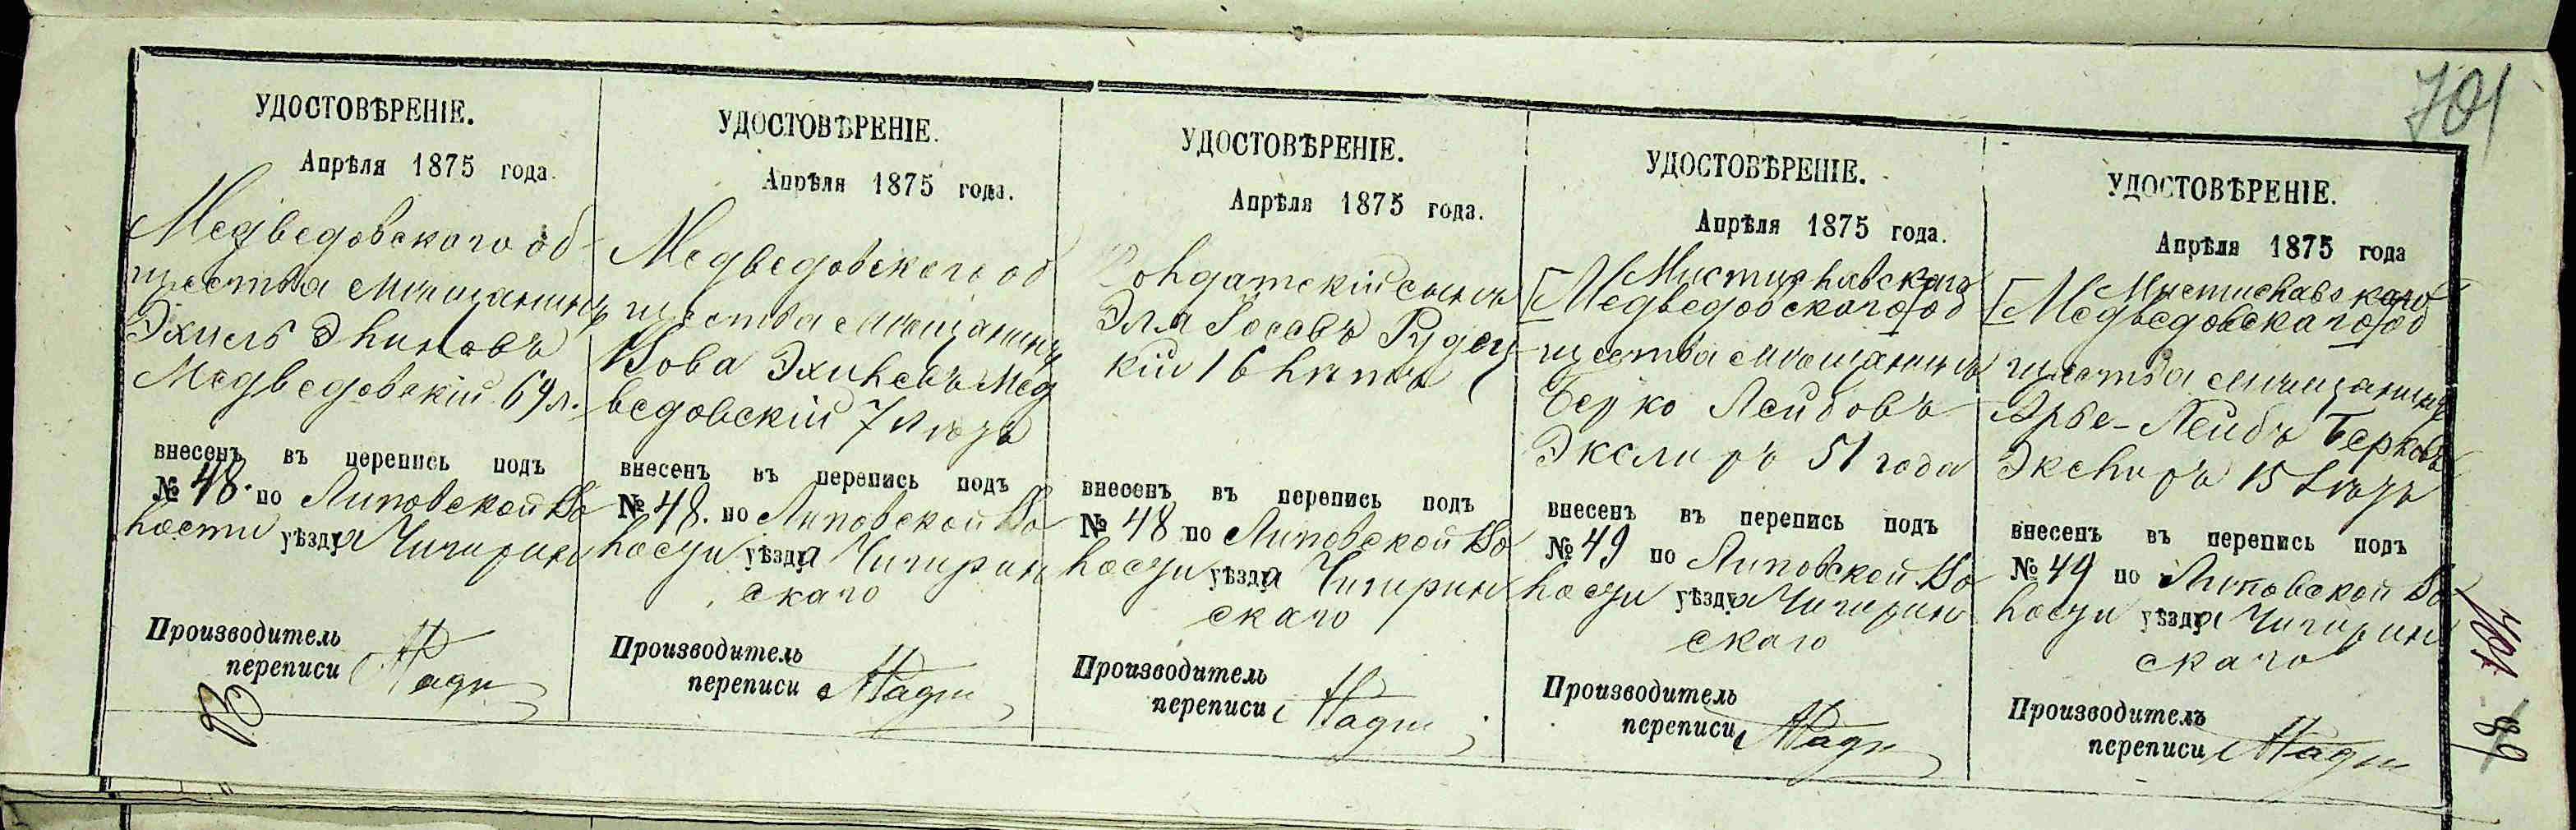 701
УДОСТОВѢРЕНІЕ.
Апрѣля 1875 года.
Медведовскаго об-
щества мѣщанинъ
Эхиль
Медведовскій 69 л.
внесенъ въ перепись подъ
№ 48. по Липовской Во
лости уѣзда Чигирин
Производитель
переписи
УДОСТОВѢРЕНІЕ.
Апрѣля 1875 года.
Медведовскаго об
щества мѣщанинъ
Эхилевъ Мед
ведовскій 7 лѣтъ
внесенъ въ перепись подъ
№ 48. по Липовской Во
лости уѣзда Чигирин
скаго
Производитель
переписи
УДОСТОВѢРЕНІЕ.
Апрѣля 1875 года.
Солдатскій сынъ
Эля Іосевъ Рудец
кій 16 лѣтъ
внесенъ въ перепись подъ
№ 48 по Липовской Во
лости уѣзда Чигирин
скаго
Производитель
переписи
УДОСТОВѢРЕНІЕ.
Апрѣля 1875 года.
Мстиславскаго
[Медведовскаго] об
щества мѣщанинъ
Берко Лейбовъ
Экслиръ 51 года
внесенъ въ перепись подъ
№ 49 по Липовской Во
лости уѣзда Чигирин
скаго
Производитель
переписи
УДОСТОВѢРЕНІЕ.
Апрѣля 1875 года
Мстиславскаго
[Медведовскаго] об
щества мѣщанинъ
Арье-Лейбъ Берковъ
Экслиръ 15 лѣтъ
внесенъ въ перепись подъ
№ 49 по Липовской Во
лости уѣзда Чигирин
скаго
Производитель
переписи